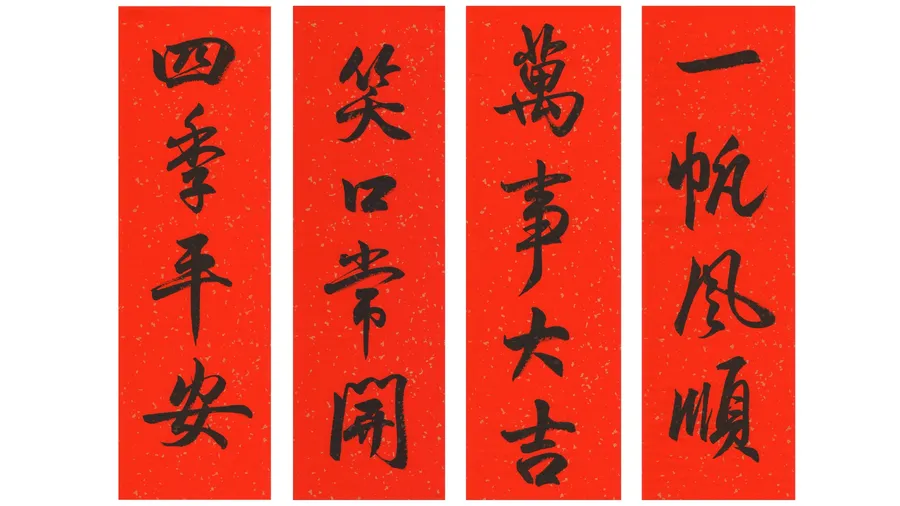 一帆風順
萬事大吉
笑口常開
四季平安